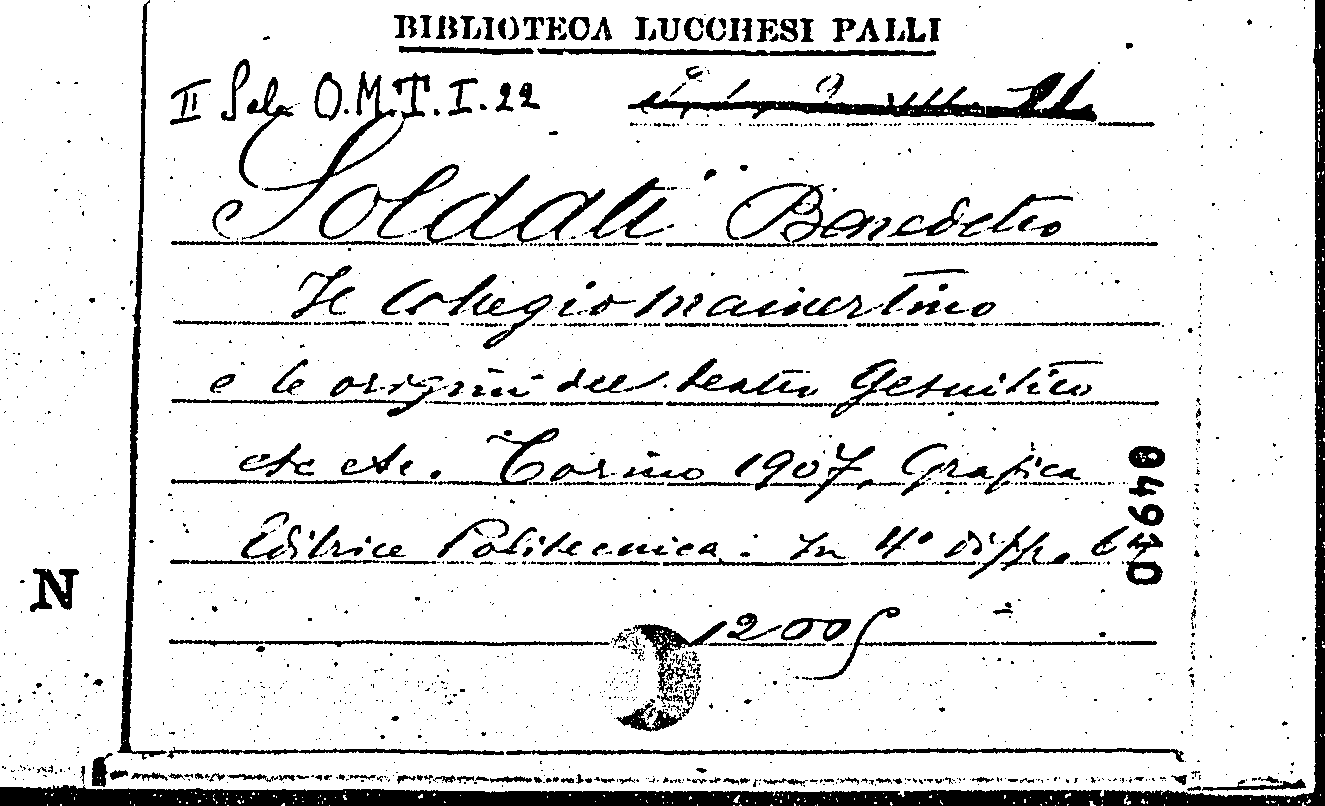 BIBLIOTECA LUCCHESI PALLI
II Sala O.M.T.I.22
Soldati Benedetto
Il Collegio Mamertino
e le origini del teatro Gesuitico
etc etc. Torino 1907, Grafica
Editrice Politecnica. In 4° di pp.
04970
N